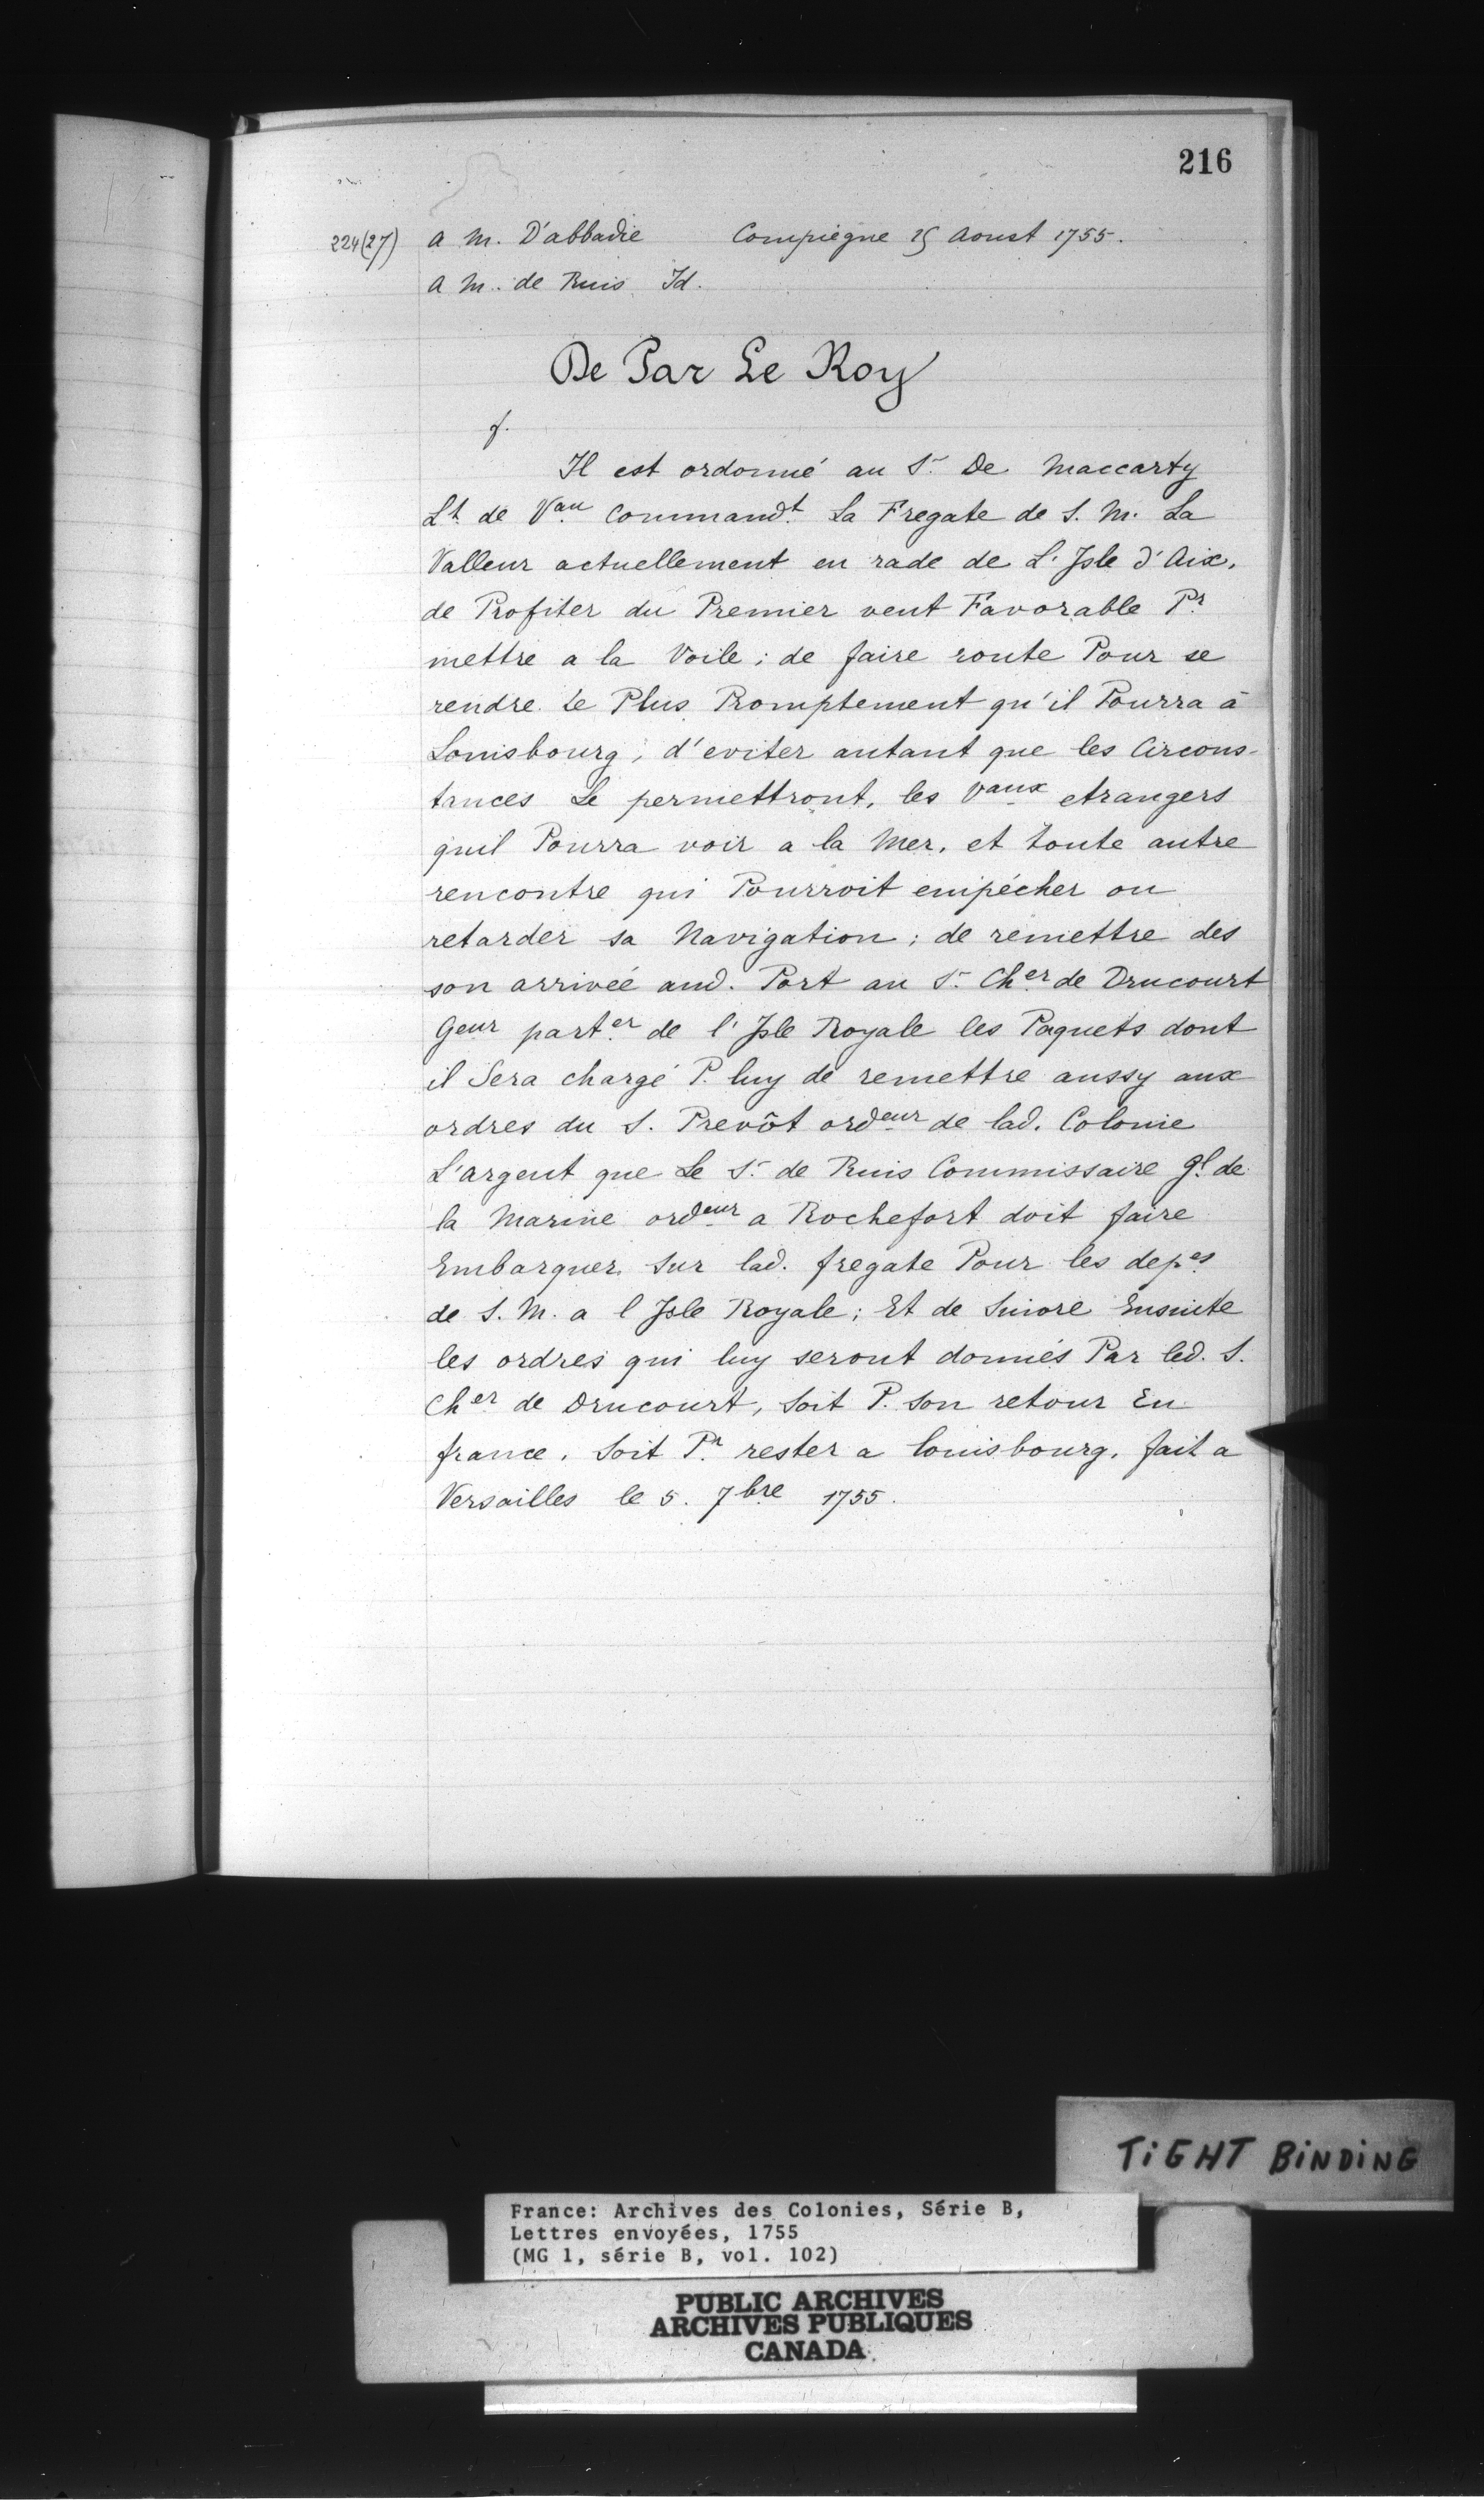 216
224(27) a M. D'abbadie Compiegne 25 Aoust 1755.
a M. de Ruis Id.
De Par Le Roy
f.
Il est ordonné au Sr. De Maccarty
Lt. de Vau. Commandt. La Fregate de S. M. La
Valleur actuellement en rade de L'Isle d'Aix,
de Profiter du Premier vent Favorable Pr.
mettre a la Voile; de faire route Pour se
rendre Le Plus Promptement qu'il Pourra à
Louisbourg, d'eviter autant que les Circons-
tances Le permettront, les Vaux etrangers
quil Pourra voir a la Mer, et toute autre
rencontre qui Pourroit empêcher ou
retarder sa Navigation; de remettre des
son arrivée aud. Port au Sr. Cher. de Drucourt
Geur parter. de l'Isle Royale les Paquets dont
il Sera chargé P. luy de remettre aussy aux
ordres du S. Prevôt ordeur de lad. Colonie
L'argent que Le Sr. de Ruis Commissaire Gl. de
la Marine ordeur a Rochefort doit faire
Embarquer Sur lad. fregate Pour les depes
de S. M. a l Isle Royale; Et de Suivre Ensuite
les ordres qui luy seront donnés Par led. S.
Cher de Drucourt, Soit P. Son retour En
france, Soit Pr. rester a louisbourg, fait a
Versailles le 5. 7bre 1755.
TIGHT BINDING
France: Archives des Colonies, Série B,
Lettres envoyées, 1755
(MG 1, série B, vol. 102)
PUBLIC ARCHIVES
ARCHIVES PUBLIQUES
CANADA